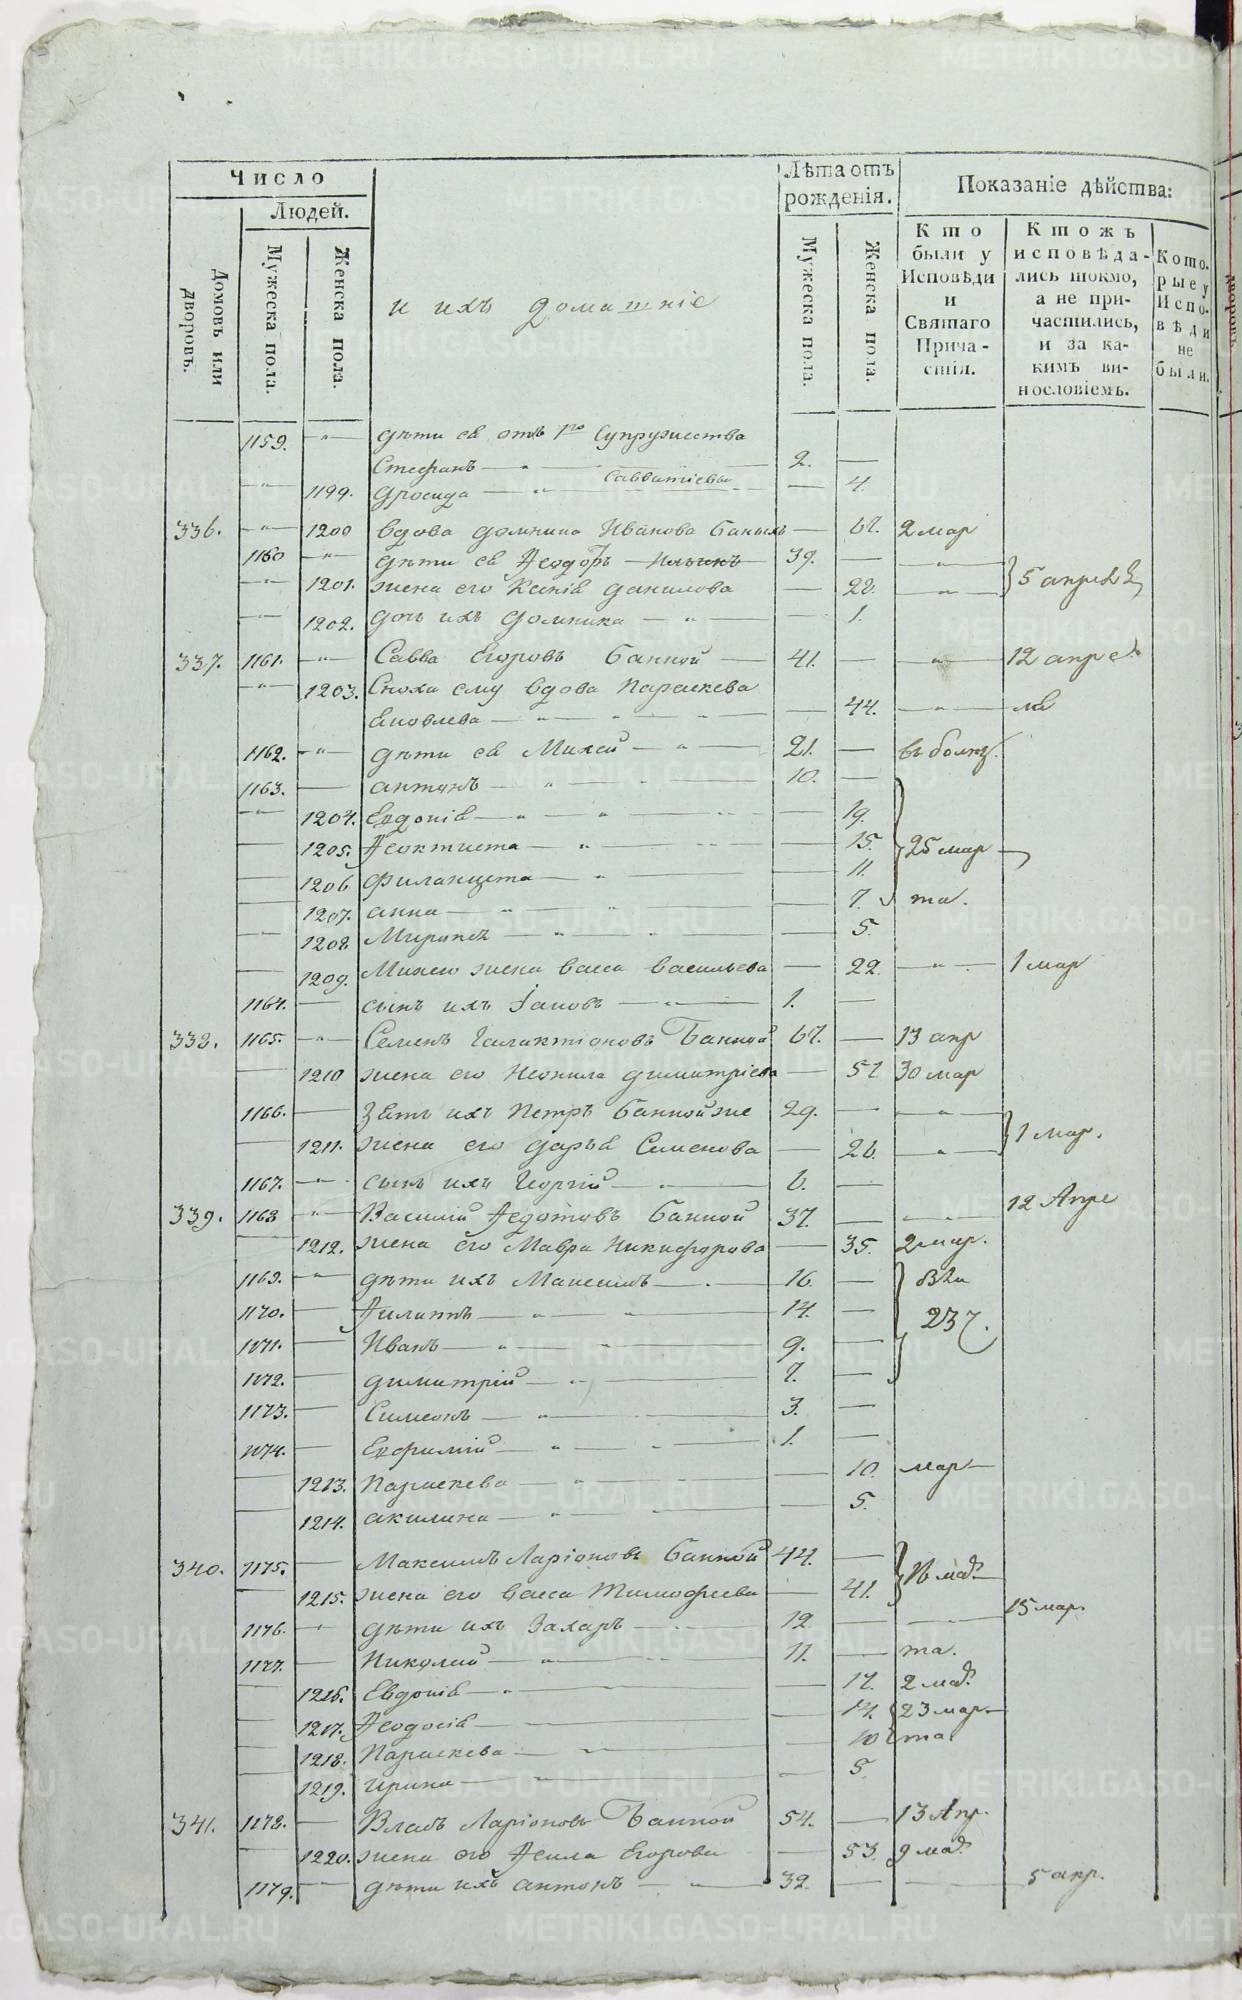 Число
Людей.
Домовъ или дворовъ.
Мужеска пола.
Женска пола.
и ихъ домашніе
Лѣта отъ рожденія.
Мужеска пола.
Женска пола.
Показаніе дѣйства:
Кто были у Исповѣди и Святаго Причастія.
Ктожъ исповѣдались токмо, а не причастились, и за какимъ винословіемъ.
Которые у Исповѣди не были.
1159. дѣти ея отъ 1го супружества
Стефанъ 2.
1199. Дросида Савватіевы 4.
336. 1200 вдова Домнина Иванова Банныхъ 67. 2 мар
1160 дѣти ея Ѳеодоръ 39.
1201. жена его Ксенія Данилова 22. 5 апрел
1202. дочь ихъ Домника 1.
337. 1161. Савва Егоровъ Банной 41. 12 апрел
1203. Сноха ему вдова Параскева
Яковлева 44.
1162. дѣти ея Михей 21. въ болѣз.
1163. антонъ 10.
1204. Евдокія 19.
1205. Ѳеоктиста 15. 25 мар
1206 Филанцета 11.
1207. анна 7. та.
1208 5.
1209. Михею жена Васса Васильева 22. 1 мар
1164. сынъ ихъ Іаковъ 1.
338. 1165. Семенъ Галактіоновъ Банной 67. 13 апр
1210 жена его Неонила Димитріева 57 30 мар
1166. Зять ихъ Петръ Банной же 29.
1211. жена его Дарья Семенова 26. 1 мар.
1167. сынъ ихъ Георгій 6.
339. 1168 Василій Ѳедотовъ Банной 37. 12 Апре
1212. жена его Мавра Никифорова 35. 2 мар.
1169. дѣти ихъ Максимъ 16.
1170. Филатъ 14. 23
1171. Иванъ 9.
1172. Димитрій 7.
1173. Симеонъ 3.
1174. Евфимій 1.
1213. Параскева 10. мар
1214. акилина 5.
340. 1175. Максимъ Ларіоновъ Банной 44. 16 мар
1215. жена его Васса Тимофеева 41.
1176. дѣти ихъ Захаръ 12 15 мар.
1177. Николай 11. та.
1216. Евдокія 17. 2 мар
1217. Ѳеодосія 14. 23 мар.
1218. Параскева 10 та
1219. Ирина 5.
341. 1178. Власъ Ларіоновъ Банной 54. 13 Апр.
1220. жена его Ѳекла Егорова 53. 9 мар
1179. дѣти ихъ антонъ 32. 5 апр.
METRIKI.GASO-URAL.RU